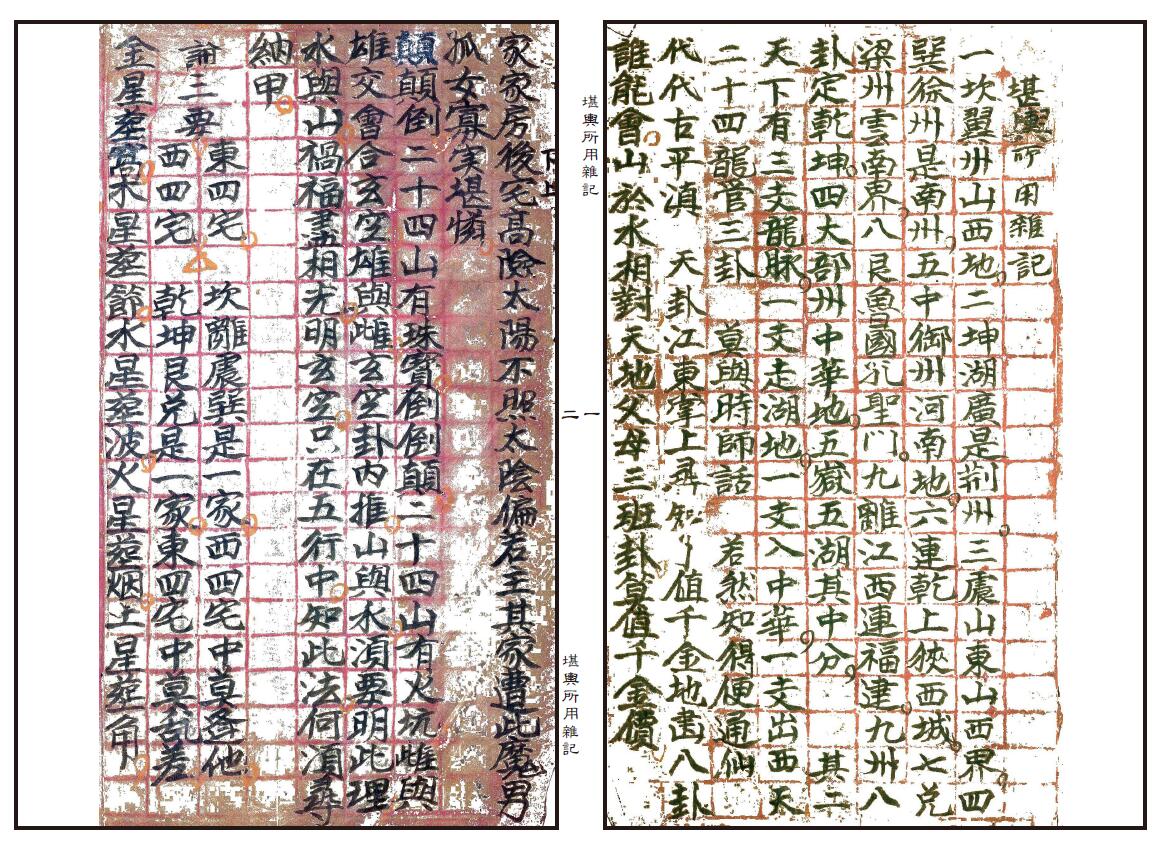 堪輿所用雜記
一坎翼州山西地二坤湖廣是荊州三震山東山西界四
巽徐州是南州五中御州河南地六連乾上狹西城七兌
梁州雲南界八艮魯國孔聖門九離江西連福建九州八
卦定乾坤四大部州中華地五嶽五湖其中分 其二
天下有三支龍脉一支走湖地一支入中華一支出西天
二十四龍管三卦 莫與時師話 若然知得便通仙
代代古平滇 天卦江東掌上尋 知了值千金地畫八卦
誰能會山於水相對天地父母三班卦算值千金價
堪輿所用雜記
一
二
堪輿所用雜記
家家房後宅高險太陽不照太陰偏若王其家曹此魔男
孤女寡实堪憐
顛顛倒二十四山有珠寶倒倒顛二十四山有火坑雌與
雄交會合玄空雄與雌玄空卦内推山與水須要明此理
水與山禍福盡相尤明玄空只在五行中知此法何須尋
納甲
論三要 東四宅 坎離震巽是一家西四宅中莫逢他
西四宅 乾坤艮兌是一家東四宅中莫乱差
金星塟窩水星塟節木星塟波火星塟烟土星塟角